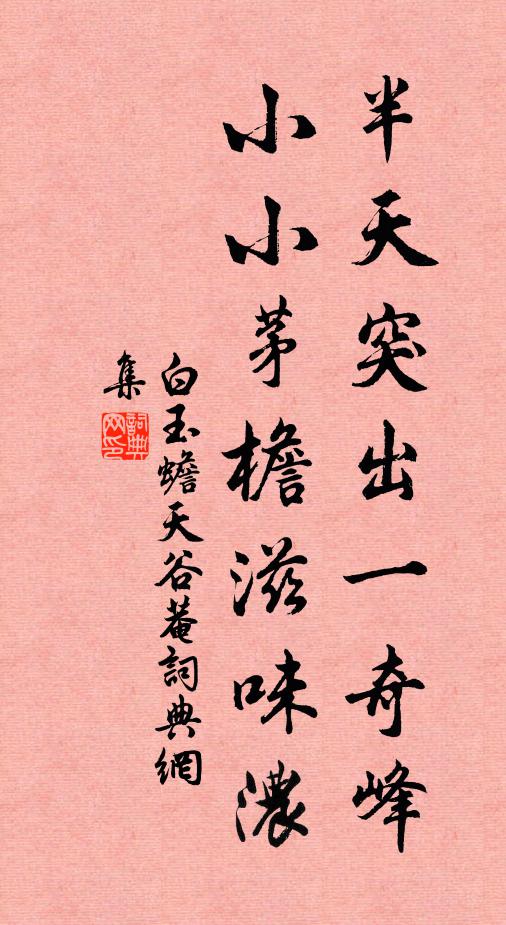 半天突出一奇峰
小小茅檐滋味濃
白玉蟾天谷菴詞典網
集
詞典
网印